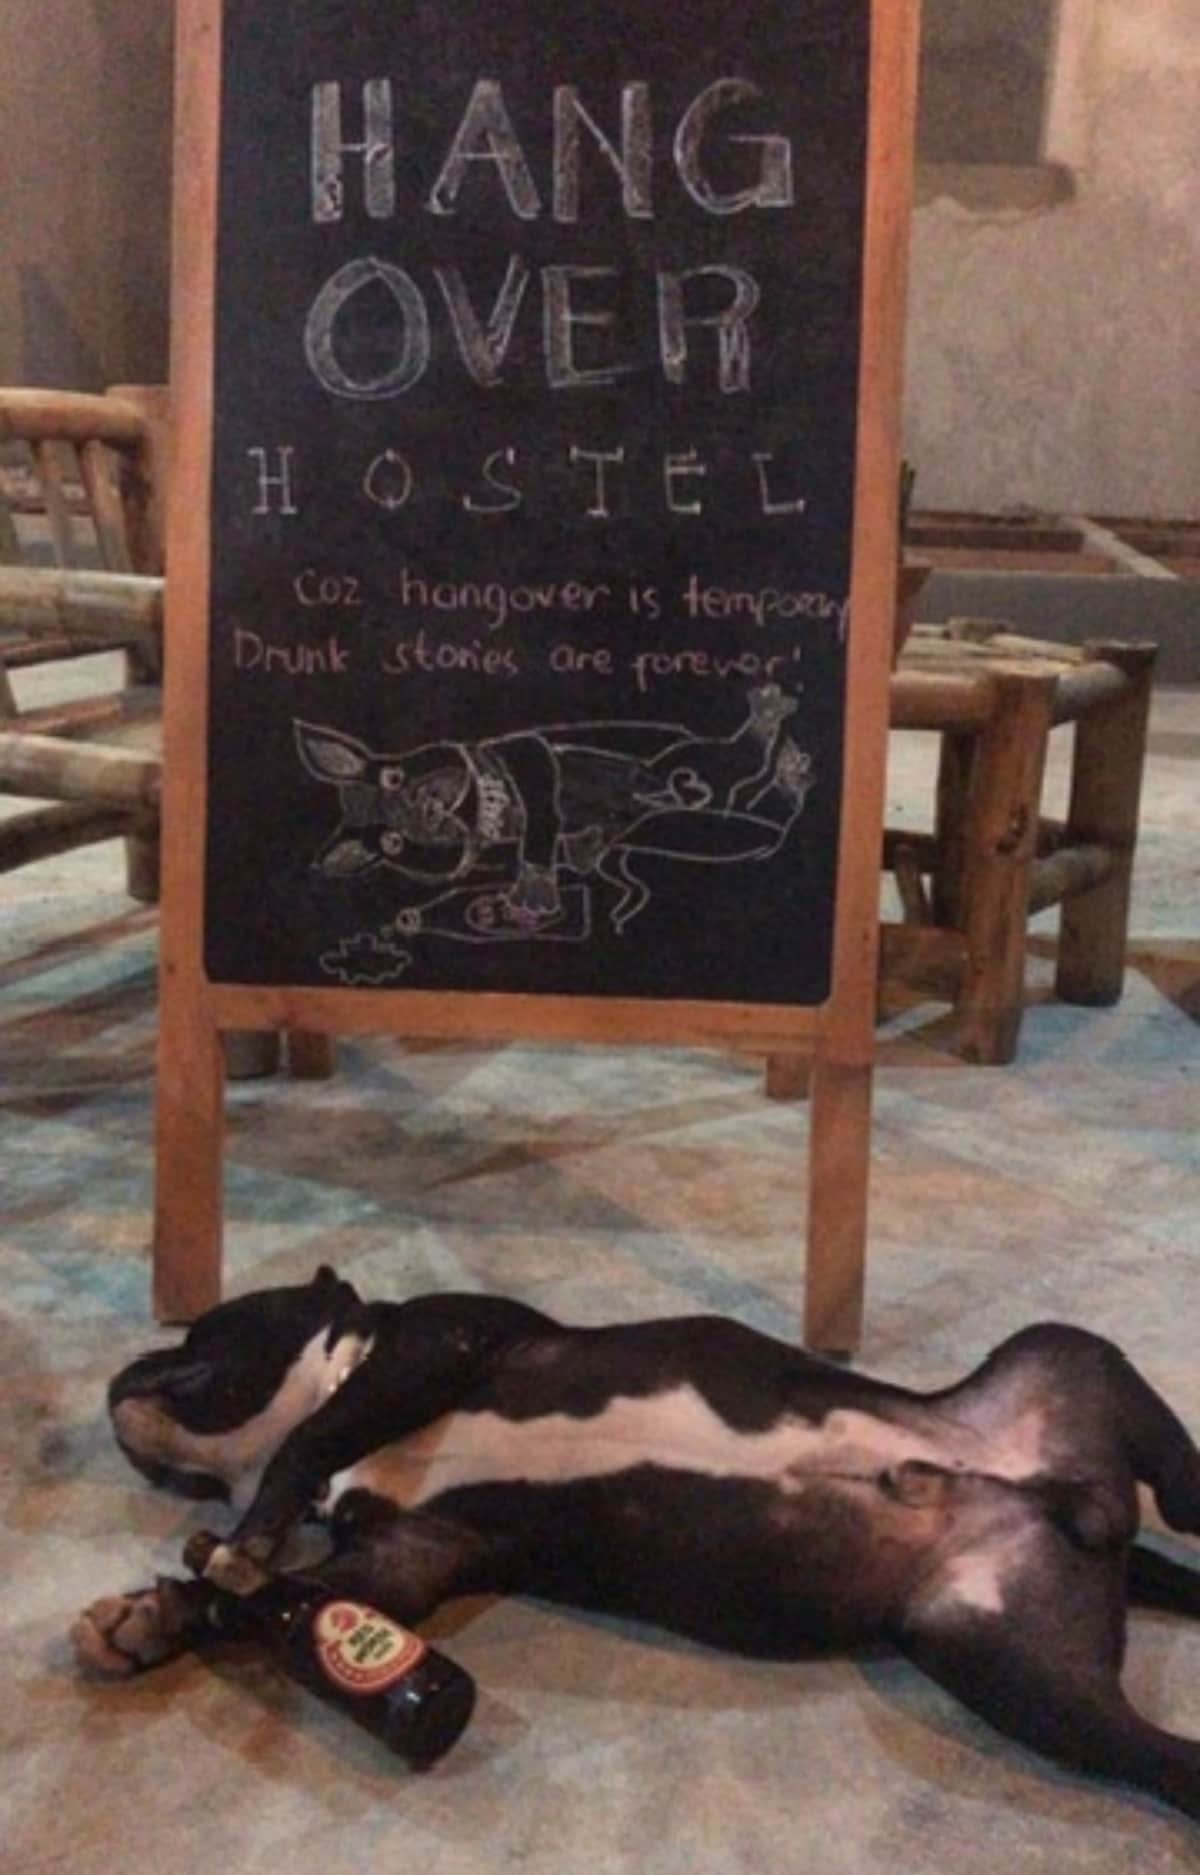 HANG
OVER
HOSTEL
Coz hangover is temporary
Drunk stories are forever!
RED HORSE